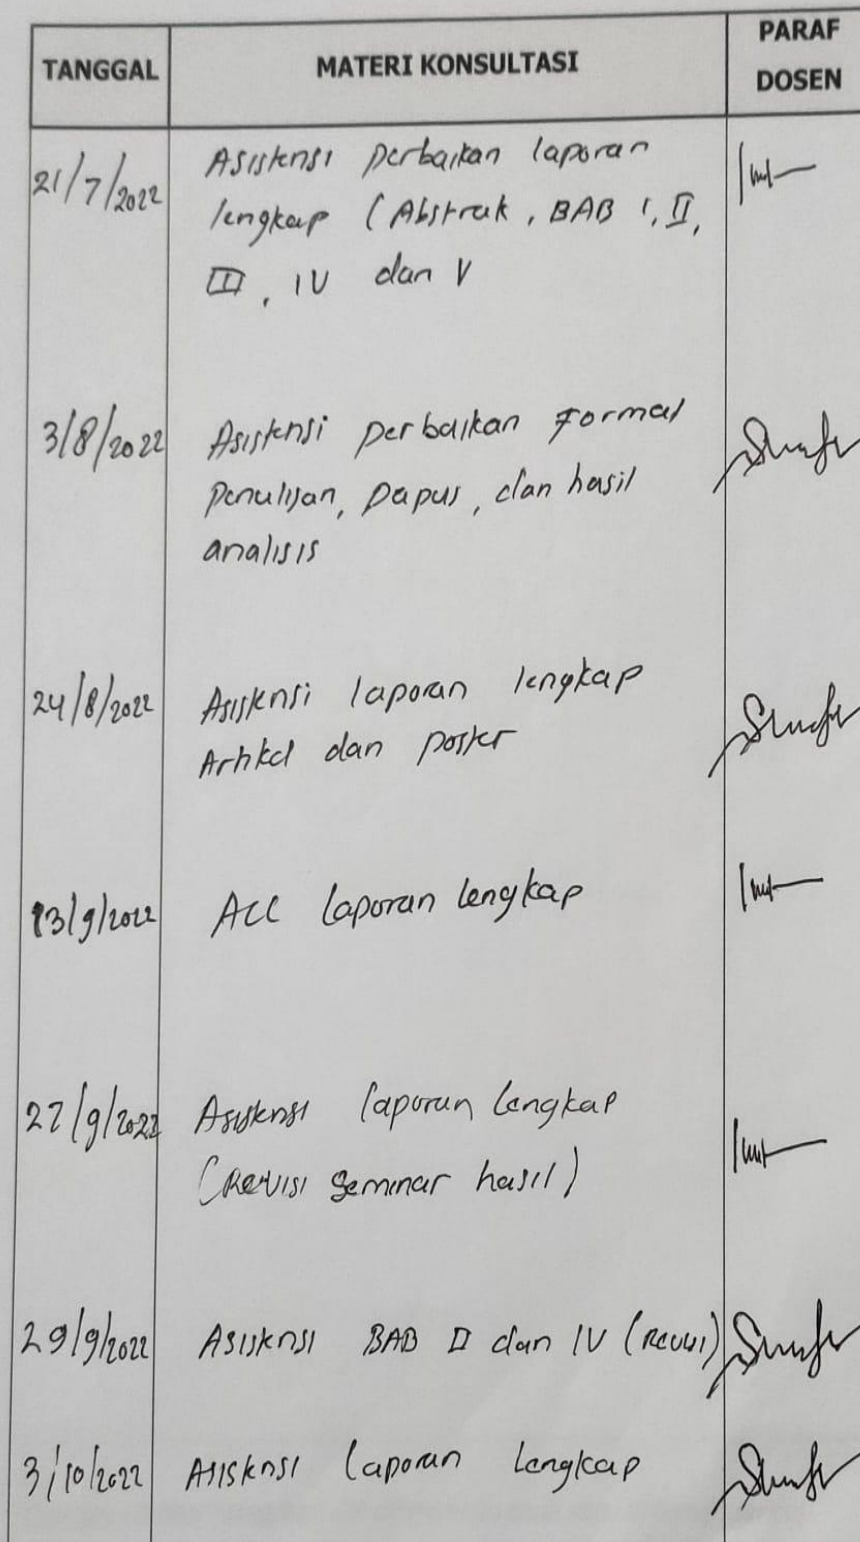 TANGGAL MATERI KONSULTASI PARAF DOSEN
21/7/2022 Asistensi perbaikan laporan
lengkap (Abstrak, BAB I, II,
III, IV dan V
3/8/2022 Asistensi perbaikan Format
Penulisan, Dapus, dan hasil
analisis
24/8/2022 Asistensi laporan lengkap
Artikel dan poster
13/9/2022 ACC laporan lengkap
27/9/2022 Asistensi laporan lengkap
(Revisi seminar hasil)
29/9/2022 Asistensi BAB II dan IV (Revisi)
3/10/2022 Asistensi laporan lengkap